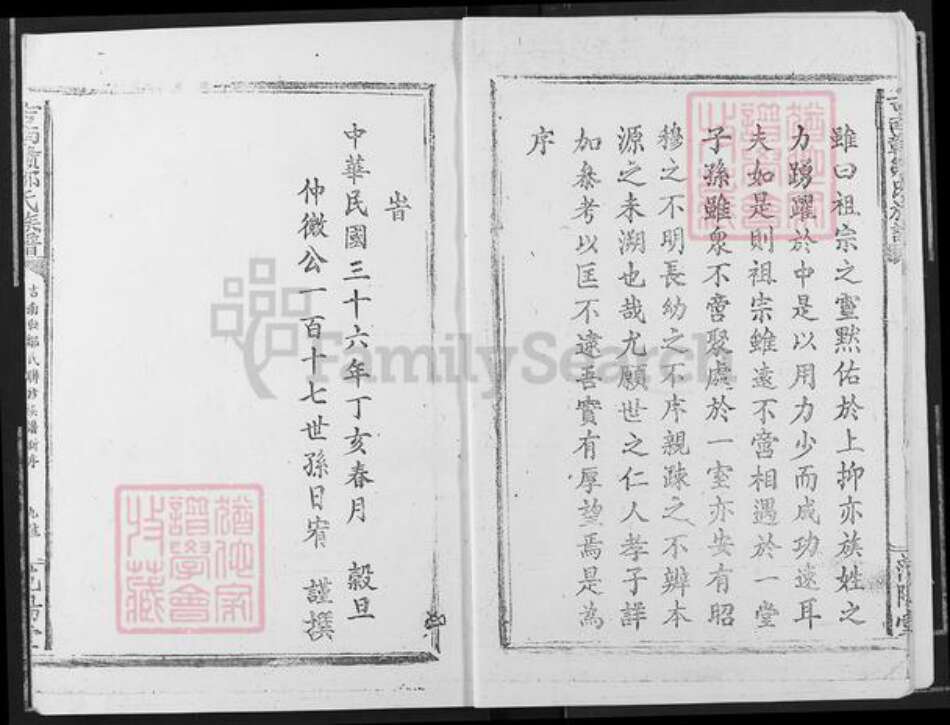 雖曰祖宗之靈黙佑於上抑亦族姓之
力踴躍於中是以用力少而成功速耳
夫如是則祖宗雖遠不啻相遇於一堂
子孫雖衆不啻聚處於一室亦安有昭
穆之不明長幼之不序親疎之不辨本
源之未溯也哉尤願世之仁人孝子詳
加參考以匡不逮吾實有厚望焉是為
序
旹
中華民國三十六年丁亥春月 穀旦
仲微公一百十七世孫日 謹撰
FamilySearch